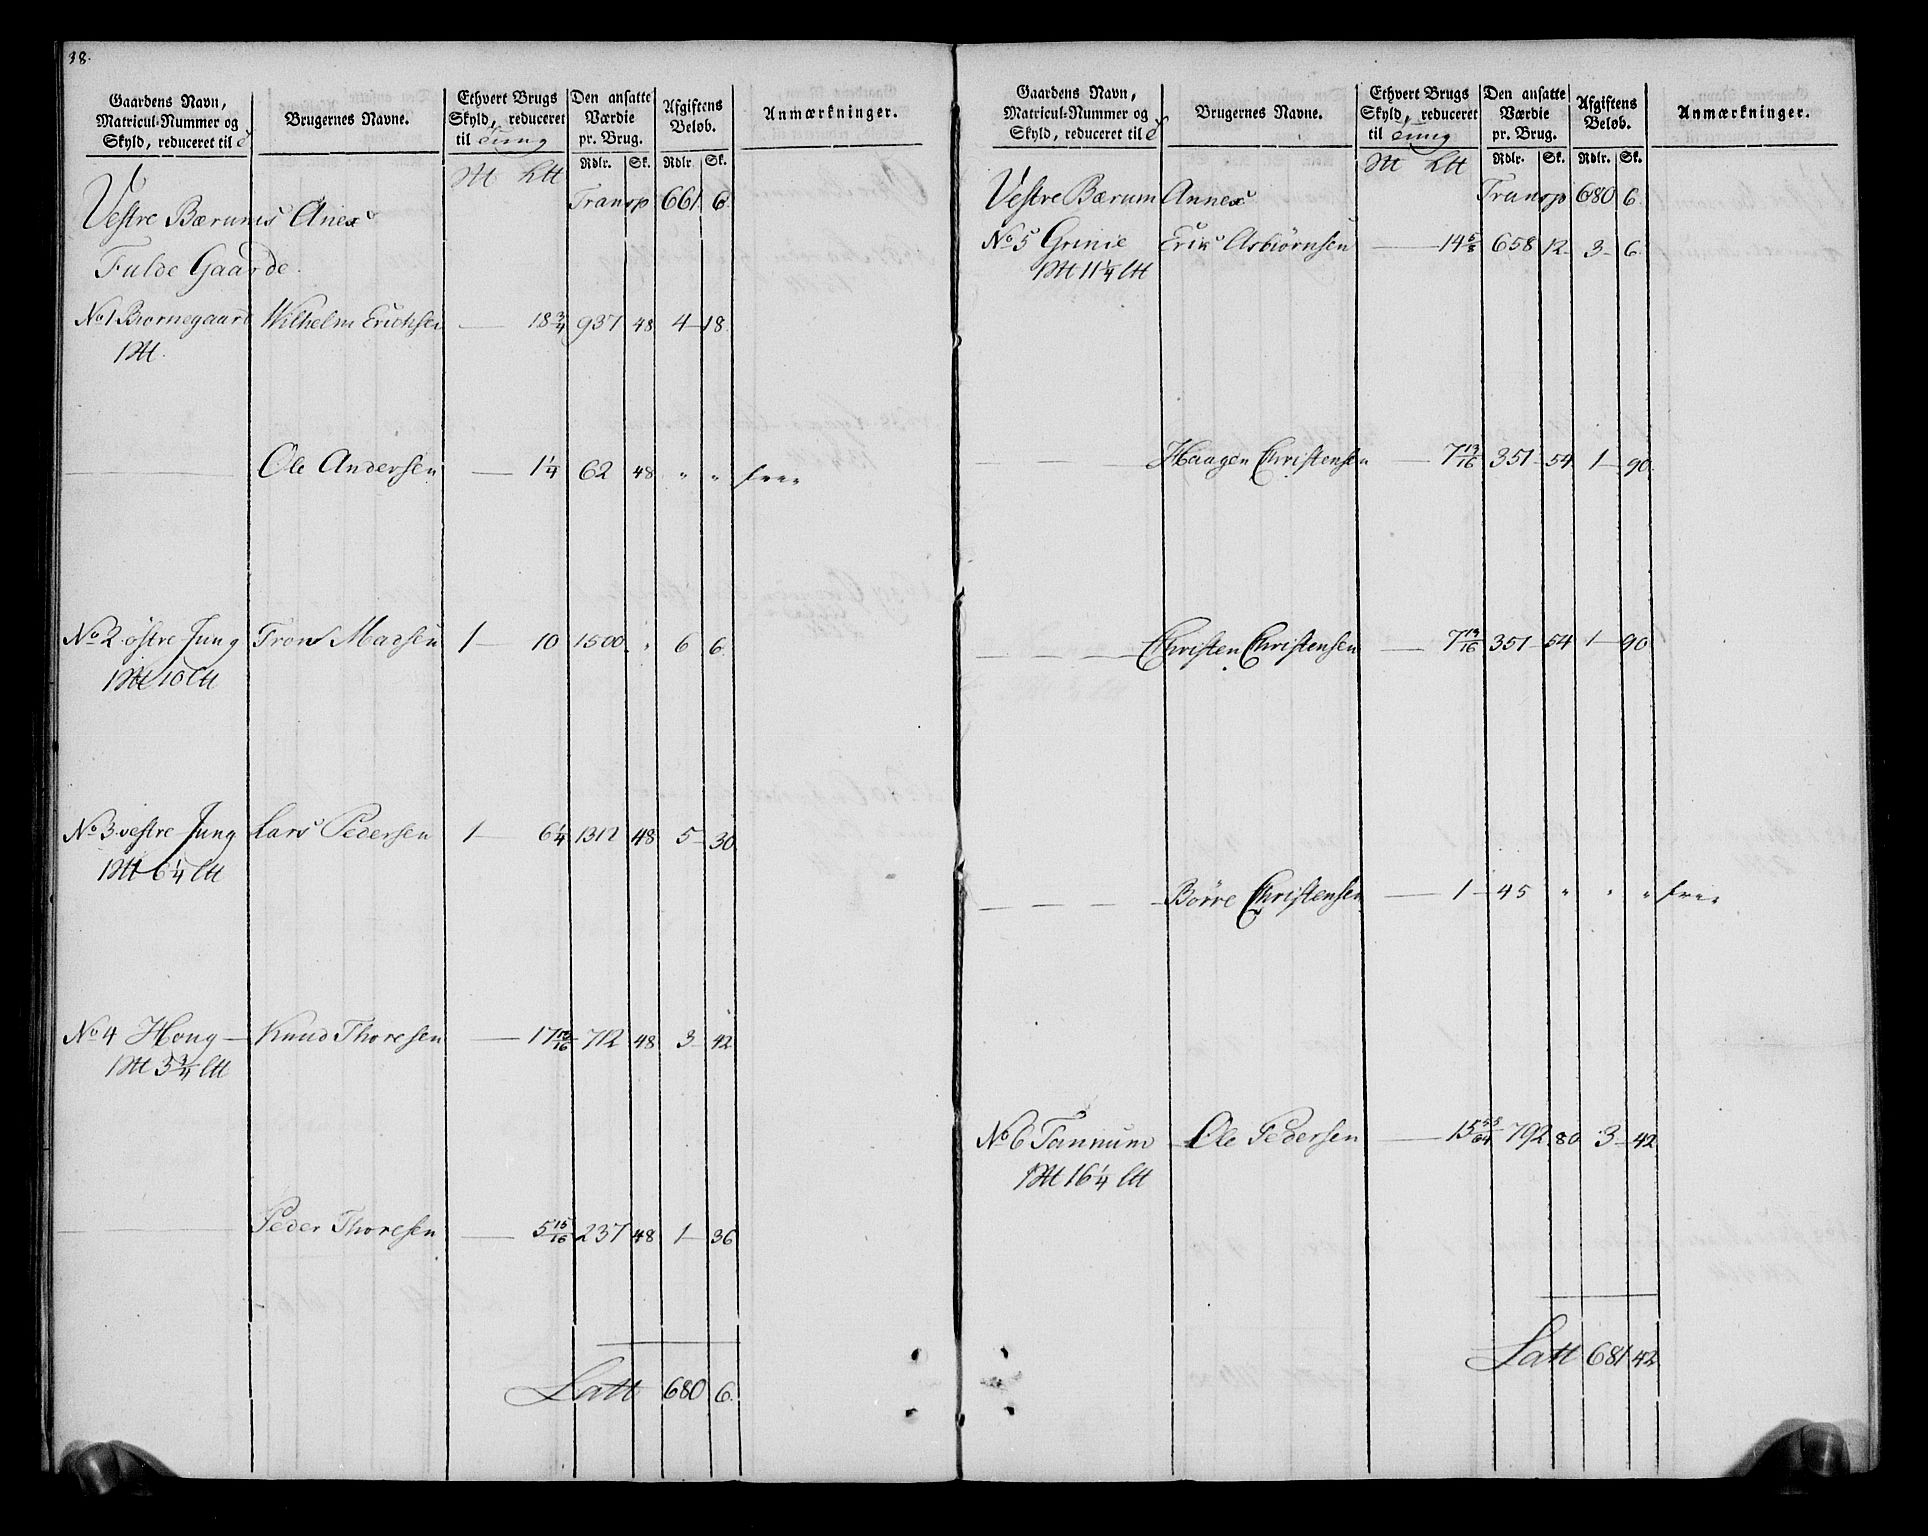 38.
Gaardens Navn, Matricul-Nummer og Skyld, reduceret til
Brugernes Navne.
Ethvert Brugs Skyld, reduceret til Tung
Den ansatte Værdie pr. Brug.
Afgiftens Beløb.
Anmærkninger.
Rdlr. Sk. Rdlr. Sk.
Vestre Bærums Anex Transp 661 6
Fulde Gaarde.
No 1 Biornegaard Wilhelm Erichsen — 18 3/4 937 48 4 — 18.
Ole Andersen — 1 1/4 62 48 " " frie
No 2 østre Jung Tron Madsen 1 — 10 1500 " 6 6.
No 3 vestre Jung Lars Pedersen 1 — 6 1/4 1312 48 5 — 30
No 4 Houg — Knud Thoresen — 17 13/16 712 48 3 — 42
Peder Thoresen — 5 15/16 237 48 1 — 36
Latt 680 6.
Gaardens Navn, Matricul-Nummer og Skyld, reduceret til
Brugernes Navne.
Ethvert Brugs Skyld, reduceret til Tung
Den ansatte Værdie pr. Brug.
Afgiftens Beløb.
Anmærkninger.
Rdlr. Sk. Rdlr. Sk.
Vestre Bærum Annex Transp 680 6
No 5 Grinie Erik Asbiörnsen — 14 5/8 658 12 3 — 6.
Haagen Christensen — 7 13/16 351 54 1 — 90.
Christen Christensen — 7 13/16 351 54 1 — 90
Börre Christensen — 1 — 45 " " " frie
No 6 Tannum — Ole Pedersen — 15 792 80 3 — 42
Latt 681 42